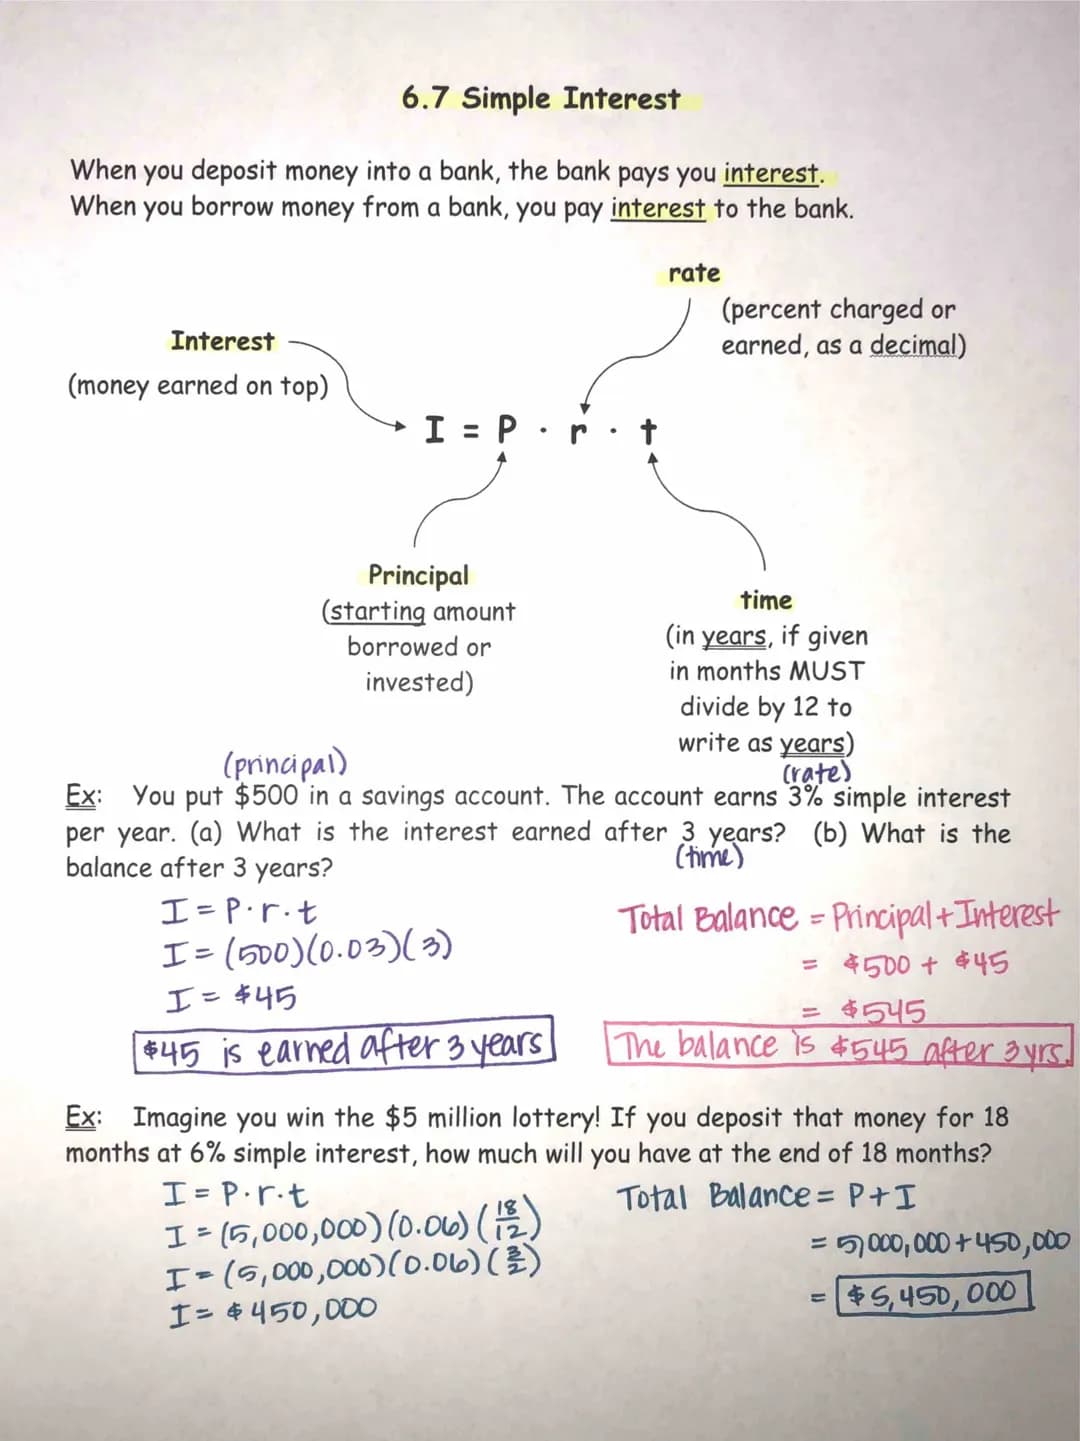 6.7 Simple Interest
When you deposit money into a bank, the bank pays you interest.
When you borrow money from a bank, you pay interest to the bank.
rate
(percent charged or
earned, as a decimal)
Interest
(money earned on top)
I = P · r · t
Principal
(starting amount
borrowed or
invested)
time
(in years, if given
in months MUST
divide by 12 to
write as years)
(principal)
(rate)
Ex: You put $500 in a savings account. The account earns 3% simple interest
per year. (a) What is the interest earned after 3 years? (b) What is the
(time)
balance after 3 years?
I = P·r·t
I = (500)(0.03)(3)
I = $45
$45 is earned after 3 years
Total Balance = Principal + Interest
= $500 + $45
= $545
The balance is $545 after 3 yrs.
Ex: Imagine you win the $5 million lottery! If you deposit that money for 18
months at 6% simple interest, how much will you have at the end of 18 months?
I = P·r·t
I = (5,000,000)(0.06)(18/12)
I = (5,000,000)(0.06)(3/2)
I = $450,000
Total Balance = P+I
= 5,000,000 + 450,000
= $5,450,000